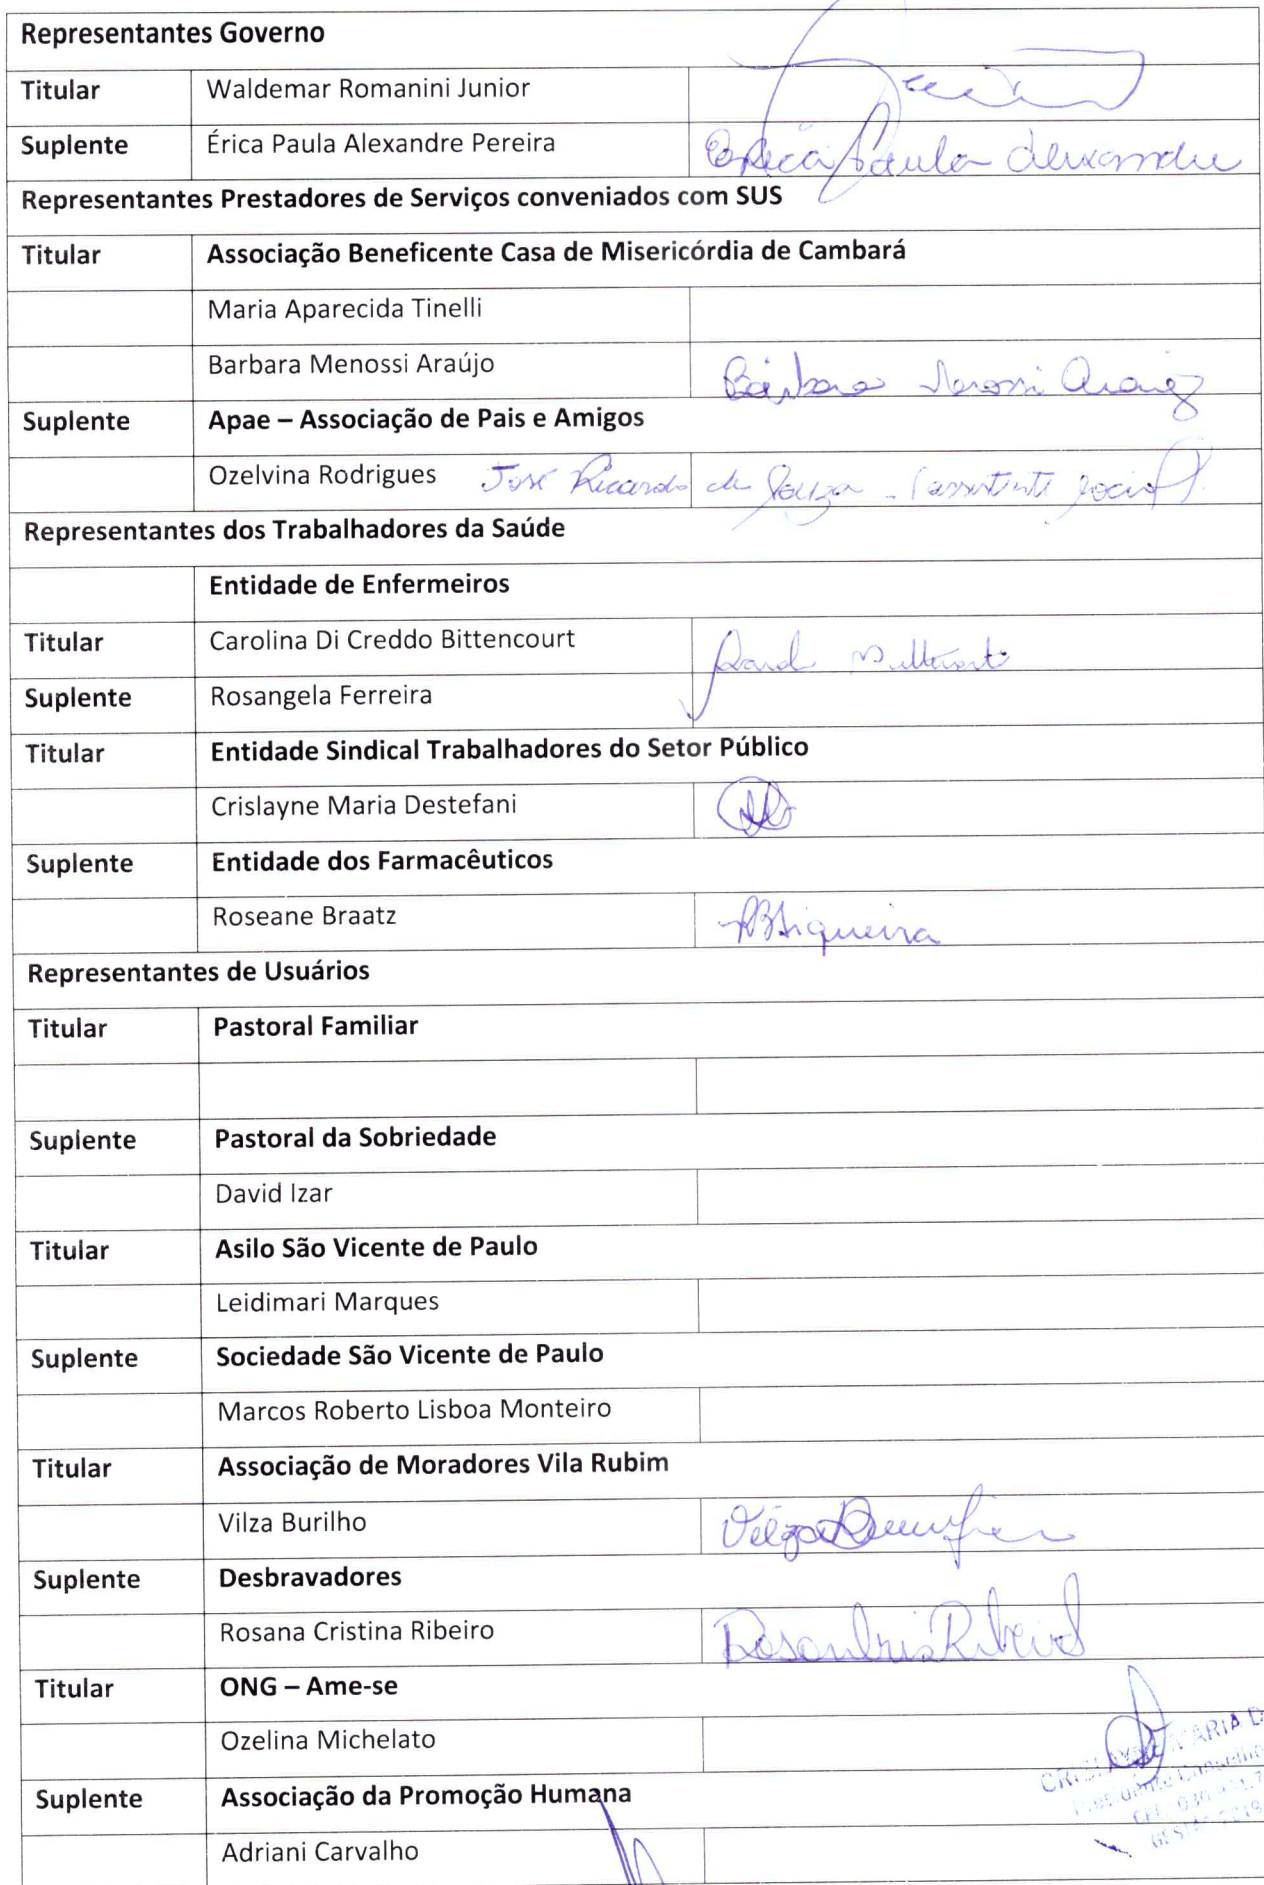 Representantes Governo
Titular Waldemar Romanini Junior
Suplente Érica Paula Alexandre Pereira Érica Paula Alexandre
Representantes Prestadores de Serviços conveniados com SUS
Titular Associação Beneficente Casa de Misericórdia de Cambará
Maria Aparecida Tinelli
Barbara Menossi Araújo Bárbara Menossi Araújo
Suplente Apae – Associação de Pais e Amigos
Ozelvina Rodrigues José Ricardo de Souza - (assistente social)
Representantes dos Trabalhadores da Saúde
Entidade de Enfermeiros
Titular Carolina Di Creddo Bittencourt
Suplente Rosangela Ferreira
Titular Entidade Sindical Trabalhadores do Setor Público
Crislayne Maria Destefani
Suplente Entidade dos Farmacêuticos
Roseane Braatz RBSiqueira
Representantes de Usuários
Titular Pastoral Familiar
Suplente Pastoral da Sobriedade
David Izar
Titular Asilo São Vicente de Paulo
Leidimari Marques
Suplente Sociedade São Vicente de Paulo
Marcos Roberto Lisboa Monteiro
Titular Associação de Moradores Vila Rubim
Vilza Burilho Vilza
Suplente Desbravadores
Rosana Cristina Ribeiro Ribeiro
Titular ONG – Ame-se
Ozelina Michelato
Suplente Associação da Promoção Humana
Adriani Carvalho